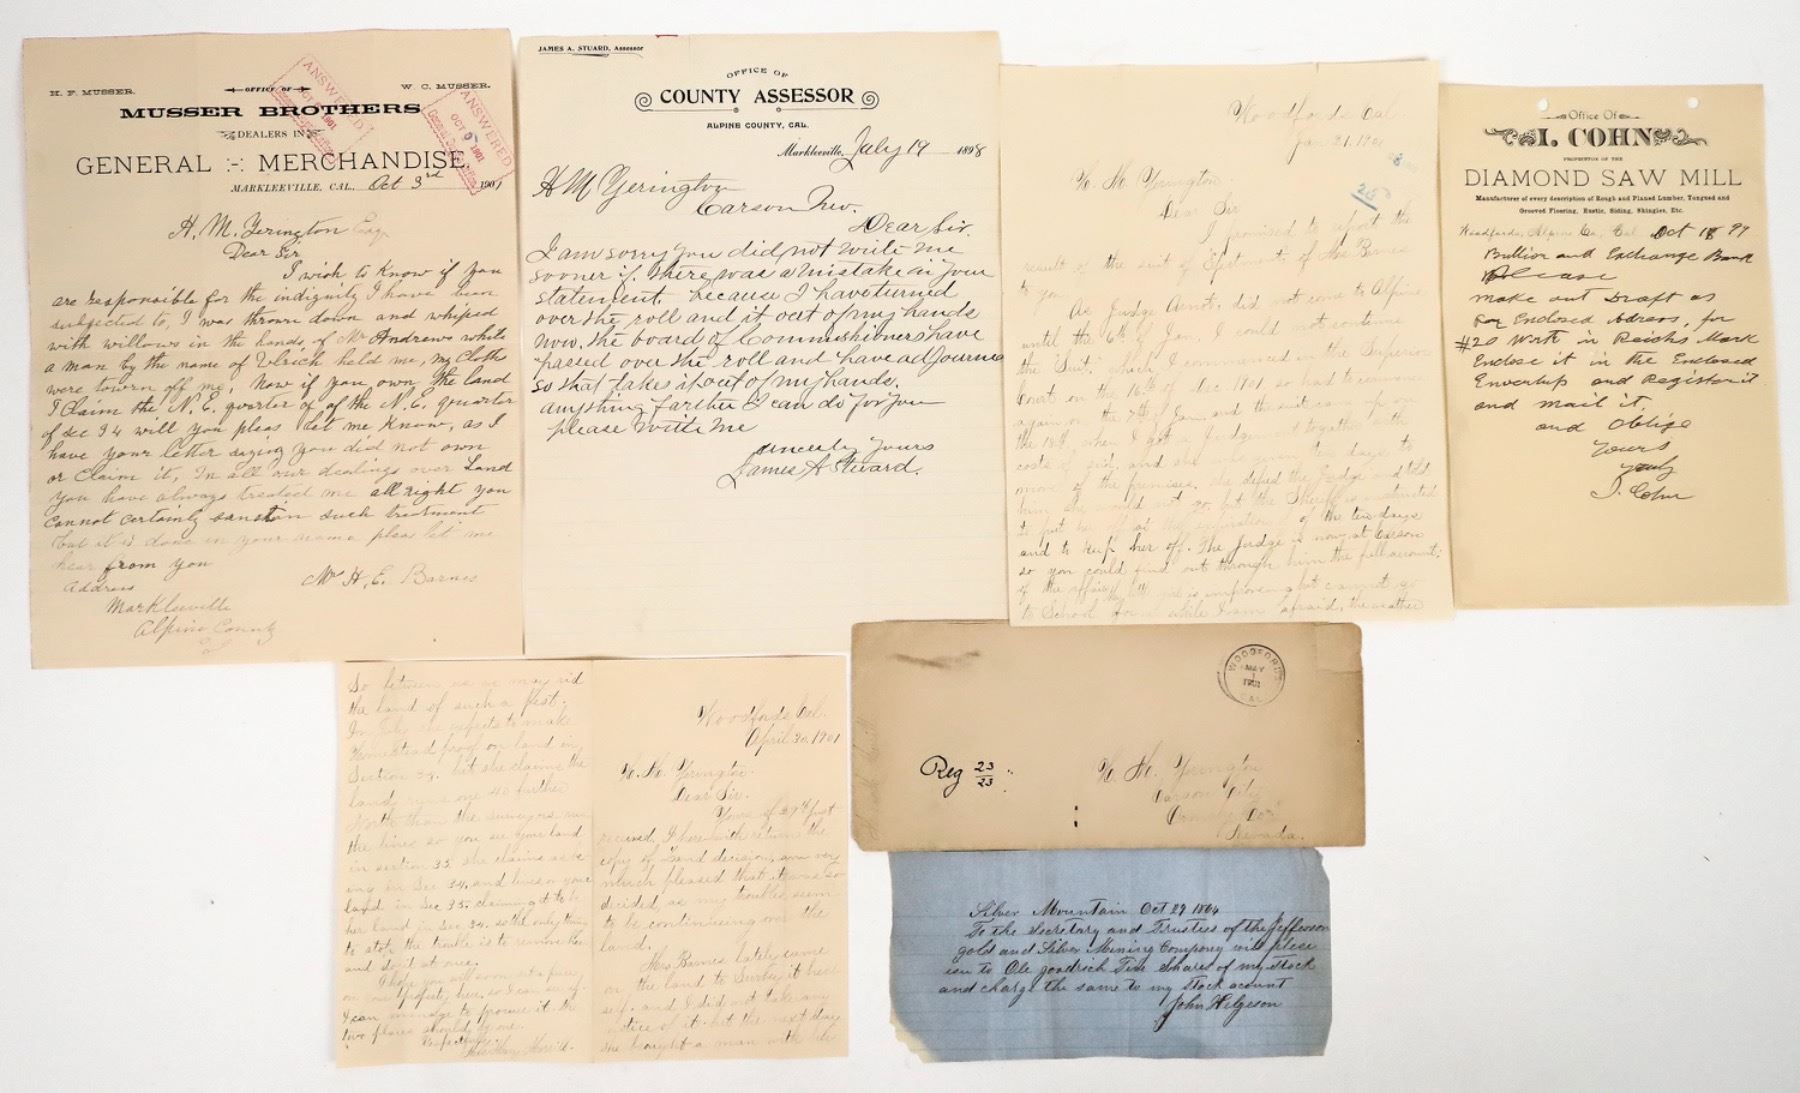 H. F. MUSSER.
OFFICE OF
W. C. MUSSER.
MUSSER BROTHERS
DEALERS IN
GENERAL MERCHANDISE.
MARKLEEVILLE, CAL. Oct 3rd 1901
ANSWERED
1901
ANSWERED
OCT 1901
H. M. Yerington Esq
Dear Sir
I wish to know if you
are responsible for the indignity I have been
subjected to, I was thrown down and whiped
with willows in the hands of Mr Andrews while
a man by the name of Ulrich held me, my Cloths
were towrn off me, Now if you own the land
I Claim the N. E. quarter of of the N. E. quarter
of sec 34 will you pleas let me know, as I
have your letter saying you did not own
or claim it, In all our dealings over Land
you have always treated me all right you
cannot certainly such treatment
but it is done in your name pleas let me
hear from you
Address
Mrs H. E. Barnes
Markleeville
Alpine County
Cal
JAMES A. STUARD, Assessor
OFFICE OF
COUNTY ASSESSOR
ALPINE COUNTY, CAL.
Markleeville, July 19 1898
H M Yerington
Carson Nev.
Dear Sir.
I am sorry you did not write me
sooner if there was a mistake in your
statement. because I have turned
over the roll and it out of my hands
now, the board of Commissioners have
passed over the roll and have adjourned
so that takes it out of my hands.
anything farther I can do for you
please write me
sincerly yours
James A Stuard.
Woodfords Cal.
Jan 21, 190
H. M. Yerington.
Dear Sir
I promised to report the
result of the suit of Ejectment of Mrs Barns
to you
As Judge Arnot. did not come to Alpine
until the 6th of Jan. I could not continue
the Suit. which I commenced in the Superior
Court on the 16th of Dec. 1901, so had to commence
again on the 7th of Jan, and the suit came up on
the 18th, when I got a Judgement together with
costs of suit, and she was given ten days to
move of the premises. she defied the Judge and told
him she would not go, but the Sheriff is instructed
to put her off at the expiration of the ten days
and to keep her off. The Judge is now at Carson
so you could find out through him the full account;
of the affair. My little girl is improving but cannot go
to School for a while I am afraid, the weather
Office Of
I. COHN
PROPRIETOR OF THE
DIAMOND SAW MILL
Manufacturer of every description of Rough and Planed Lumber, Tongued and
Grooved Flooring, Rustic, Siding, Shingles, Etc.
Woodfords, Alpine Co., Cal Oct 18 99
Bullion and Exchange Bank
Please
make out Draft as
for Enclosed Adress, for
$20 Wort in Reichs Mark
Enclose it in the Enclosed
Envertup and Register it
and mail it.
and Oblige
Yours
Truly
I. Cohn
So between us we may rid
the land of such a pest.
In July she expects to make
Homestead proof on land in
Section 34. but she claims the
land runs one 40 further
North than the surveyors run
the lines so you see your land
in section 35 she claims as be-
ing in Sec 34, and lives on your
land in Sec 35. claiming it to be
her land in Sec 34. so the only thing
to stop the trouble is to remove her
and do it at once.
I hope you will soon set a price
on our property here, so I can see if
I can manage to procure it. the
two places should be one.
Respectfully.
Merrill.
Woodfords Cal.
April 30, 1901
H. M. Yerington.
Dear Sir.
Yours of 29th just
received. I herewith return the
copy of Land decision, am very
much pleased that it was so
decided, as my troubles seem
to be continuing over the
land.
Mrs Barnes lately came
on the land to Survey it her
self, and I did not take any
notice of it. but the next day
she brought a man with her
WOODFORDS
MAY
1
1901
CAL
Reg 23/23
H. M. Yerington
Carson City
Ormsby Co.
Nevada.
Silver Mountain Oct 29 1864
To the Secretary and Trustees of the Jefferson
gold and Silver Mining Company will pleas
isu to Ole goodrich Five Shares of my Stock
and charge the same to my Stock account
John Helgeson